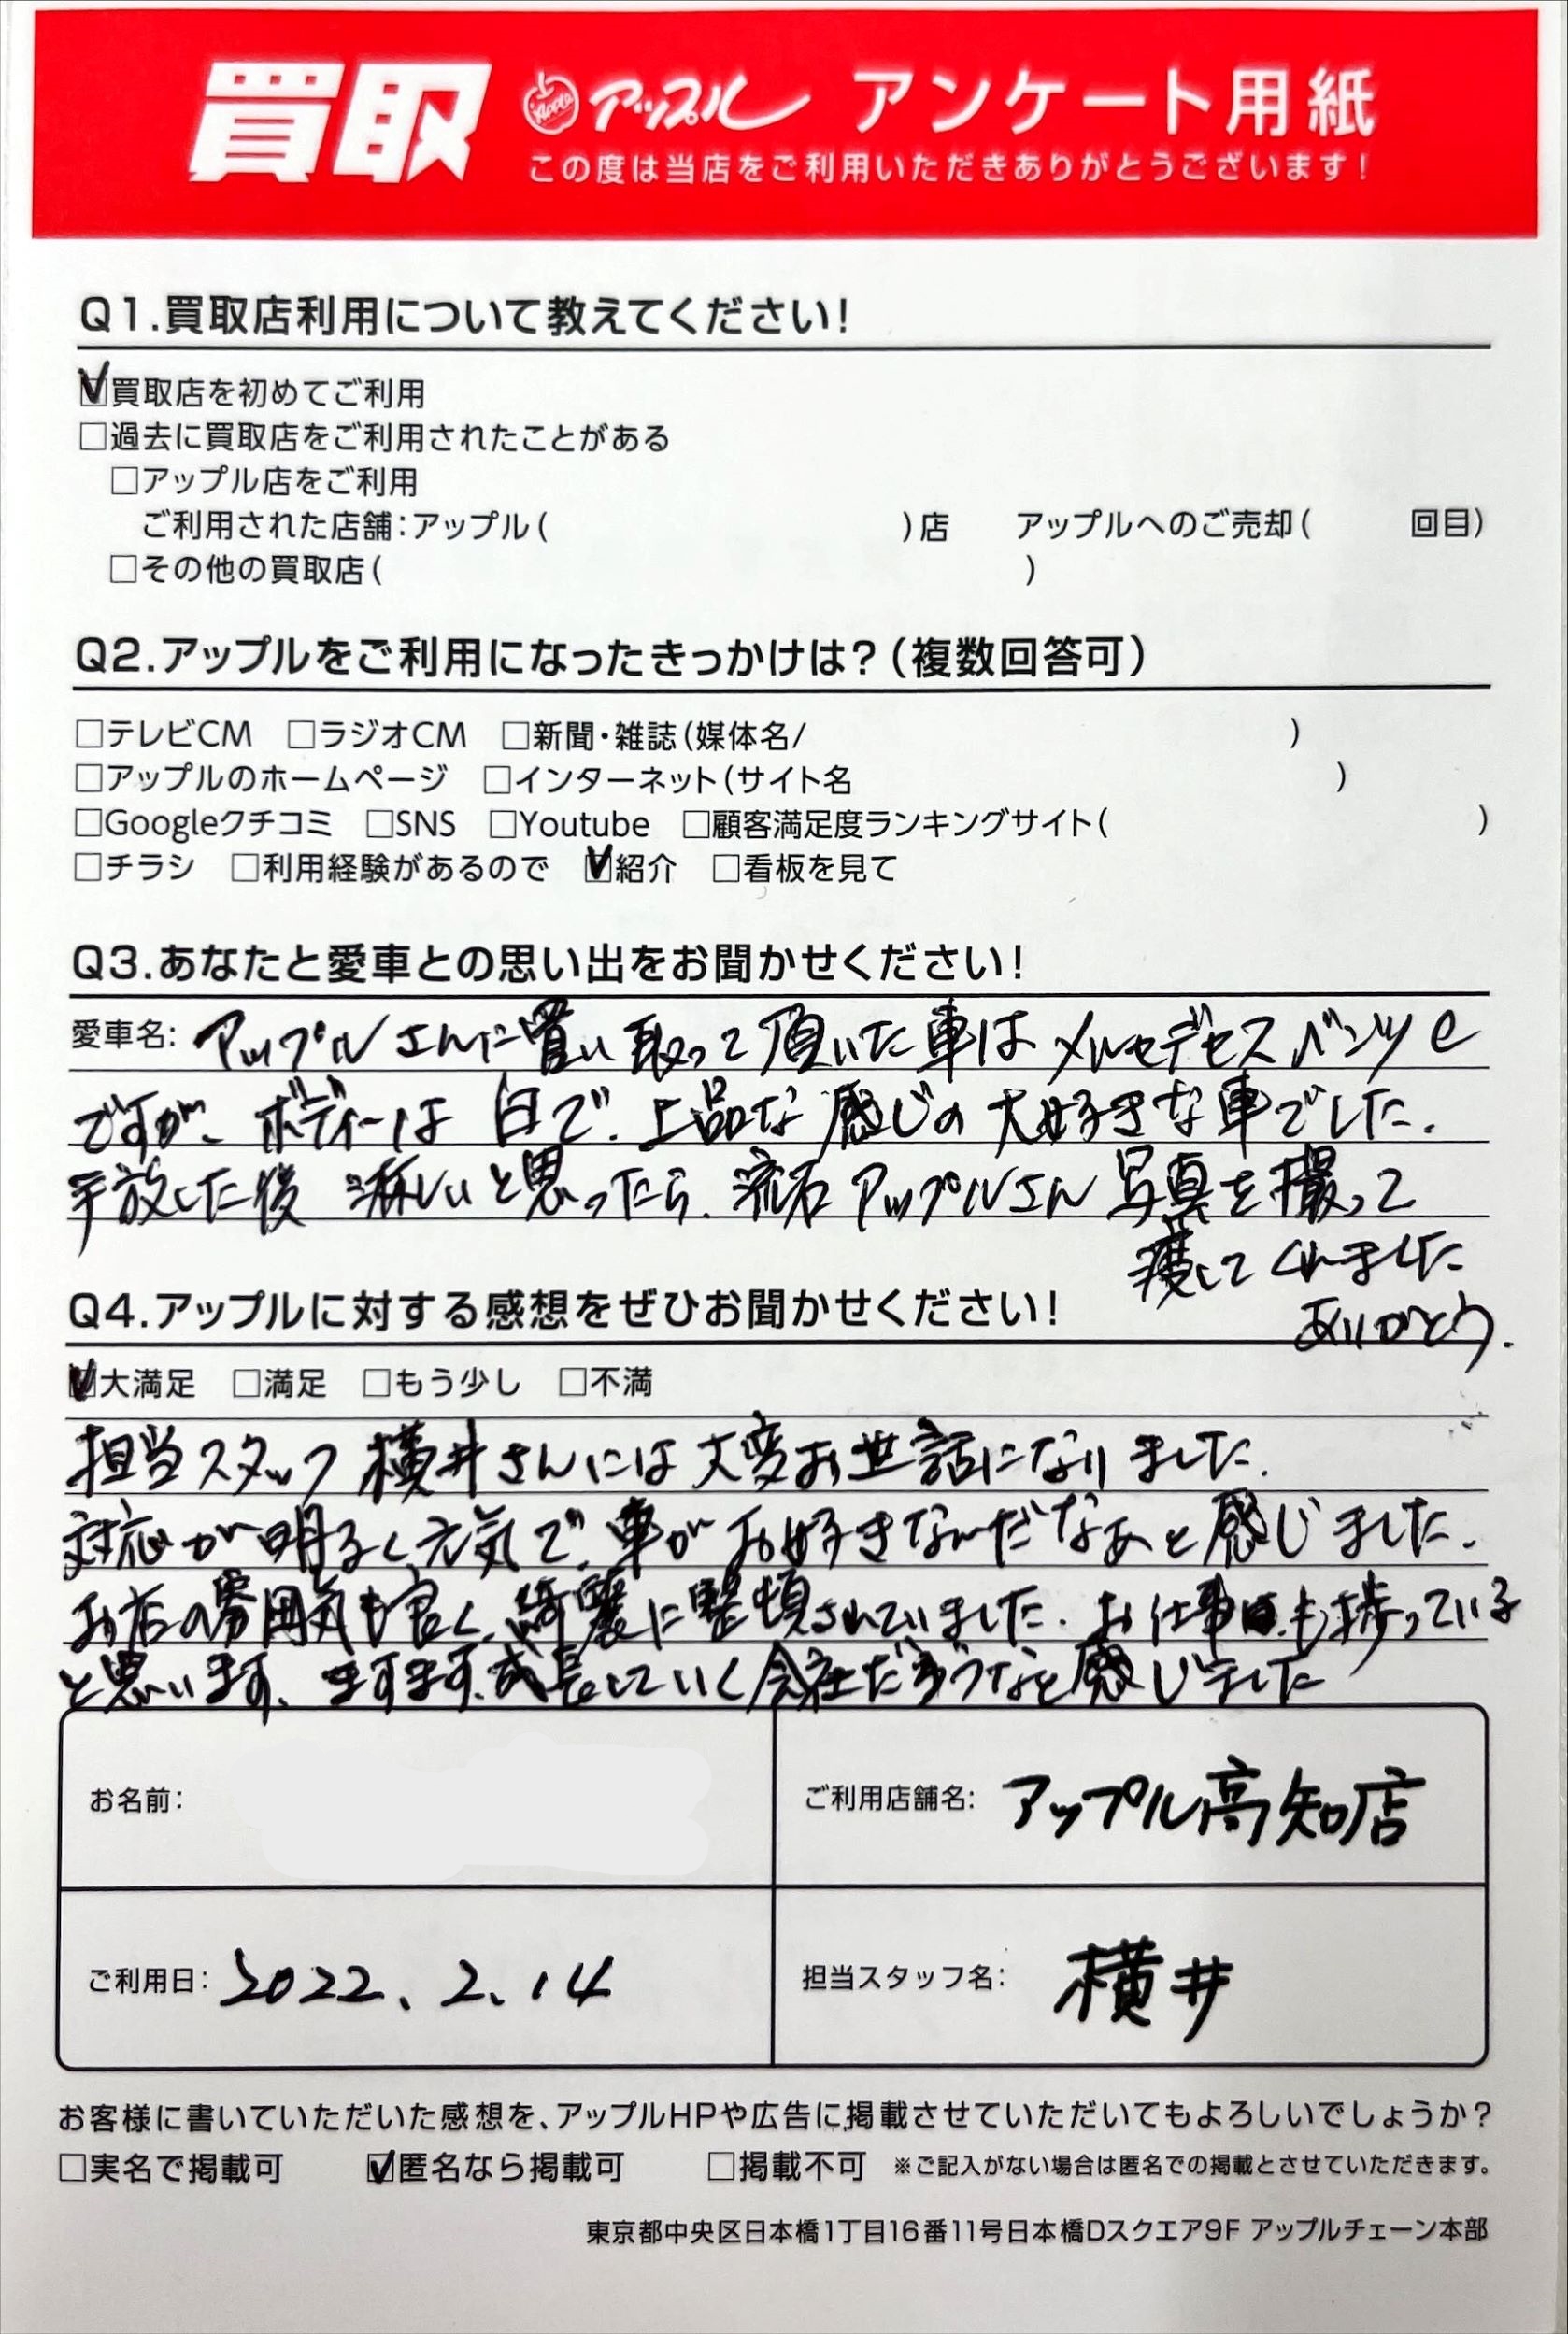 買取 Apple アップル アンケート用紙
この度は当店をご利用いただきありがとうございます!
Q1.買取店利用について教えてください!
☑買取店を初めてご利用
□過去に買取店をご利用されたことがある
□アップル店をご利用
ご利用された店舗:アップル( )店 アップルへのご売却( 回目)
□その他の買取店( )
Q2.アップルをご利用になったきっかけは?(複数回答可)
□テレビCM □ラジオCM □新聞・雑誌(媒体名/ )
□アップルのホームページ □インターネット(サイト名 )
□Googleクチコミ □SNS □Youtube □顧客満足度ランキングサイト( )
□チラシ □利用経験があるので ☑紹介 □看板を見て
Q3.あなたと愛車との思い出をお聞かせください!
愛車名: アップルさんに買い取って頂いた車はメルセデスベンツe
ですが、ボディーは白で、上品な感じの大好きな車でした。
手放した後 淋しいと思ったら、流石アップルさん 写真を撮って
渡してくれました
ありがとう。
Q4.アップルに対する感想をぜひお聞かせください!
☑大満足 □満足 □もう少し □不満
担当スタッフ 横井さんには大変お世話になりました。
対応が明るく元気で、車がお好きなんだなあと感じました。
お店の雰囲気も良く、綺麗に整頓されていました。お仕事も捗っている
と思います、ますます、成長していく会社だろうなと感じました
お名前:
ご利用店舗名: アップル高知店
ご利用日: 2022、2、14
担当スタッフ名: 横井
お客様に書いていただいた感想を、アップルHPや広告に掲載させていただいてもよろしいでしょうか?
□実名で掲載可 ☑匿名なら掲載可 □掲載不可 ※ご記入がない場合は匿名での掲載とさせていただきます。
東京都中央区日本橋1丁目16番11号日本橋Dスクエア9F アップルチェーン本部